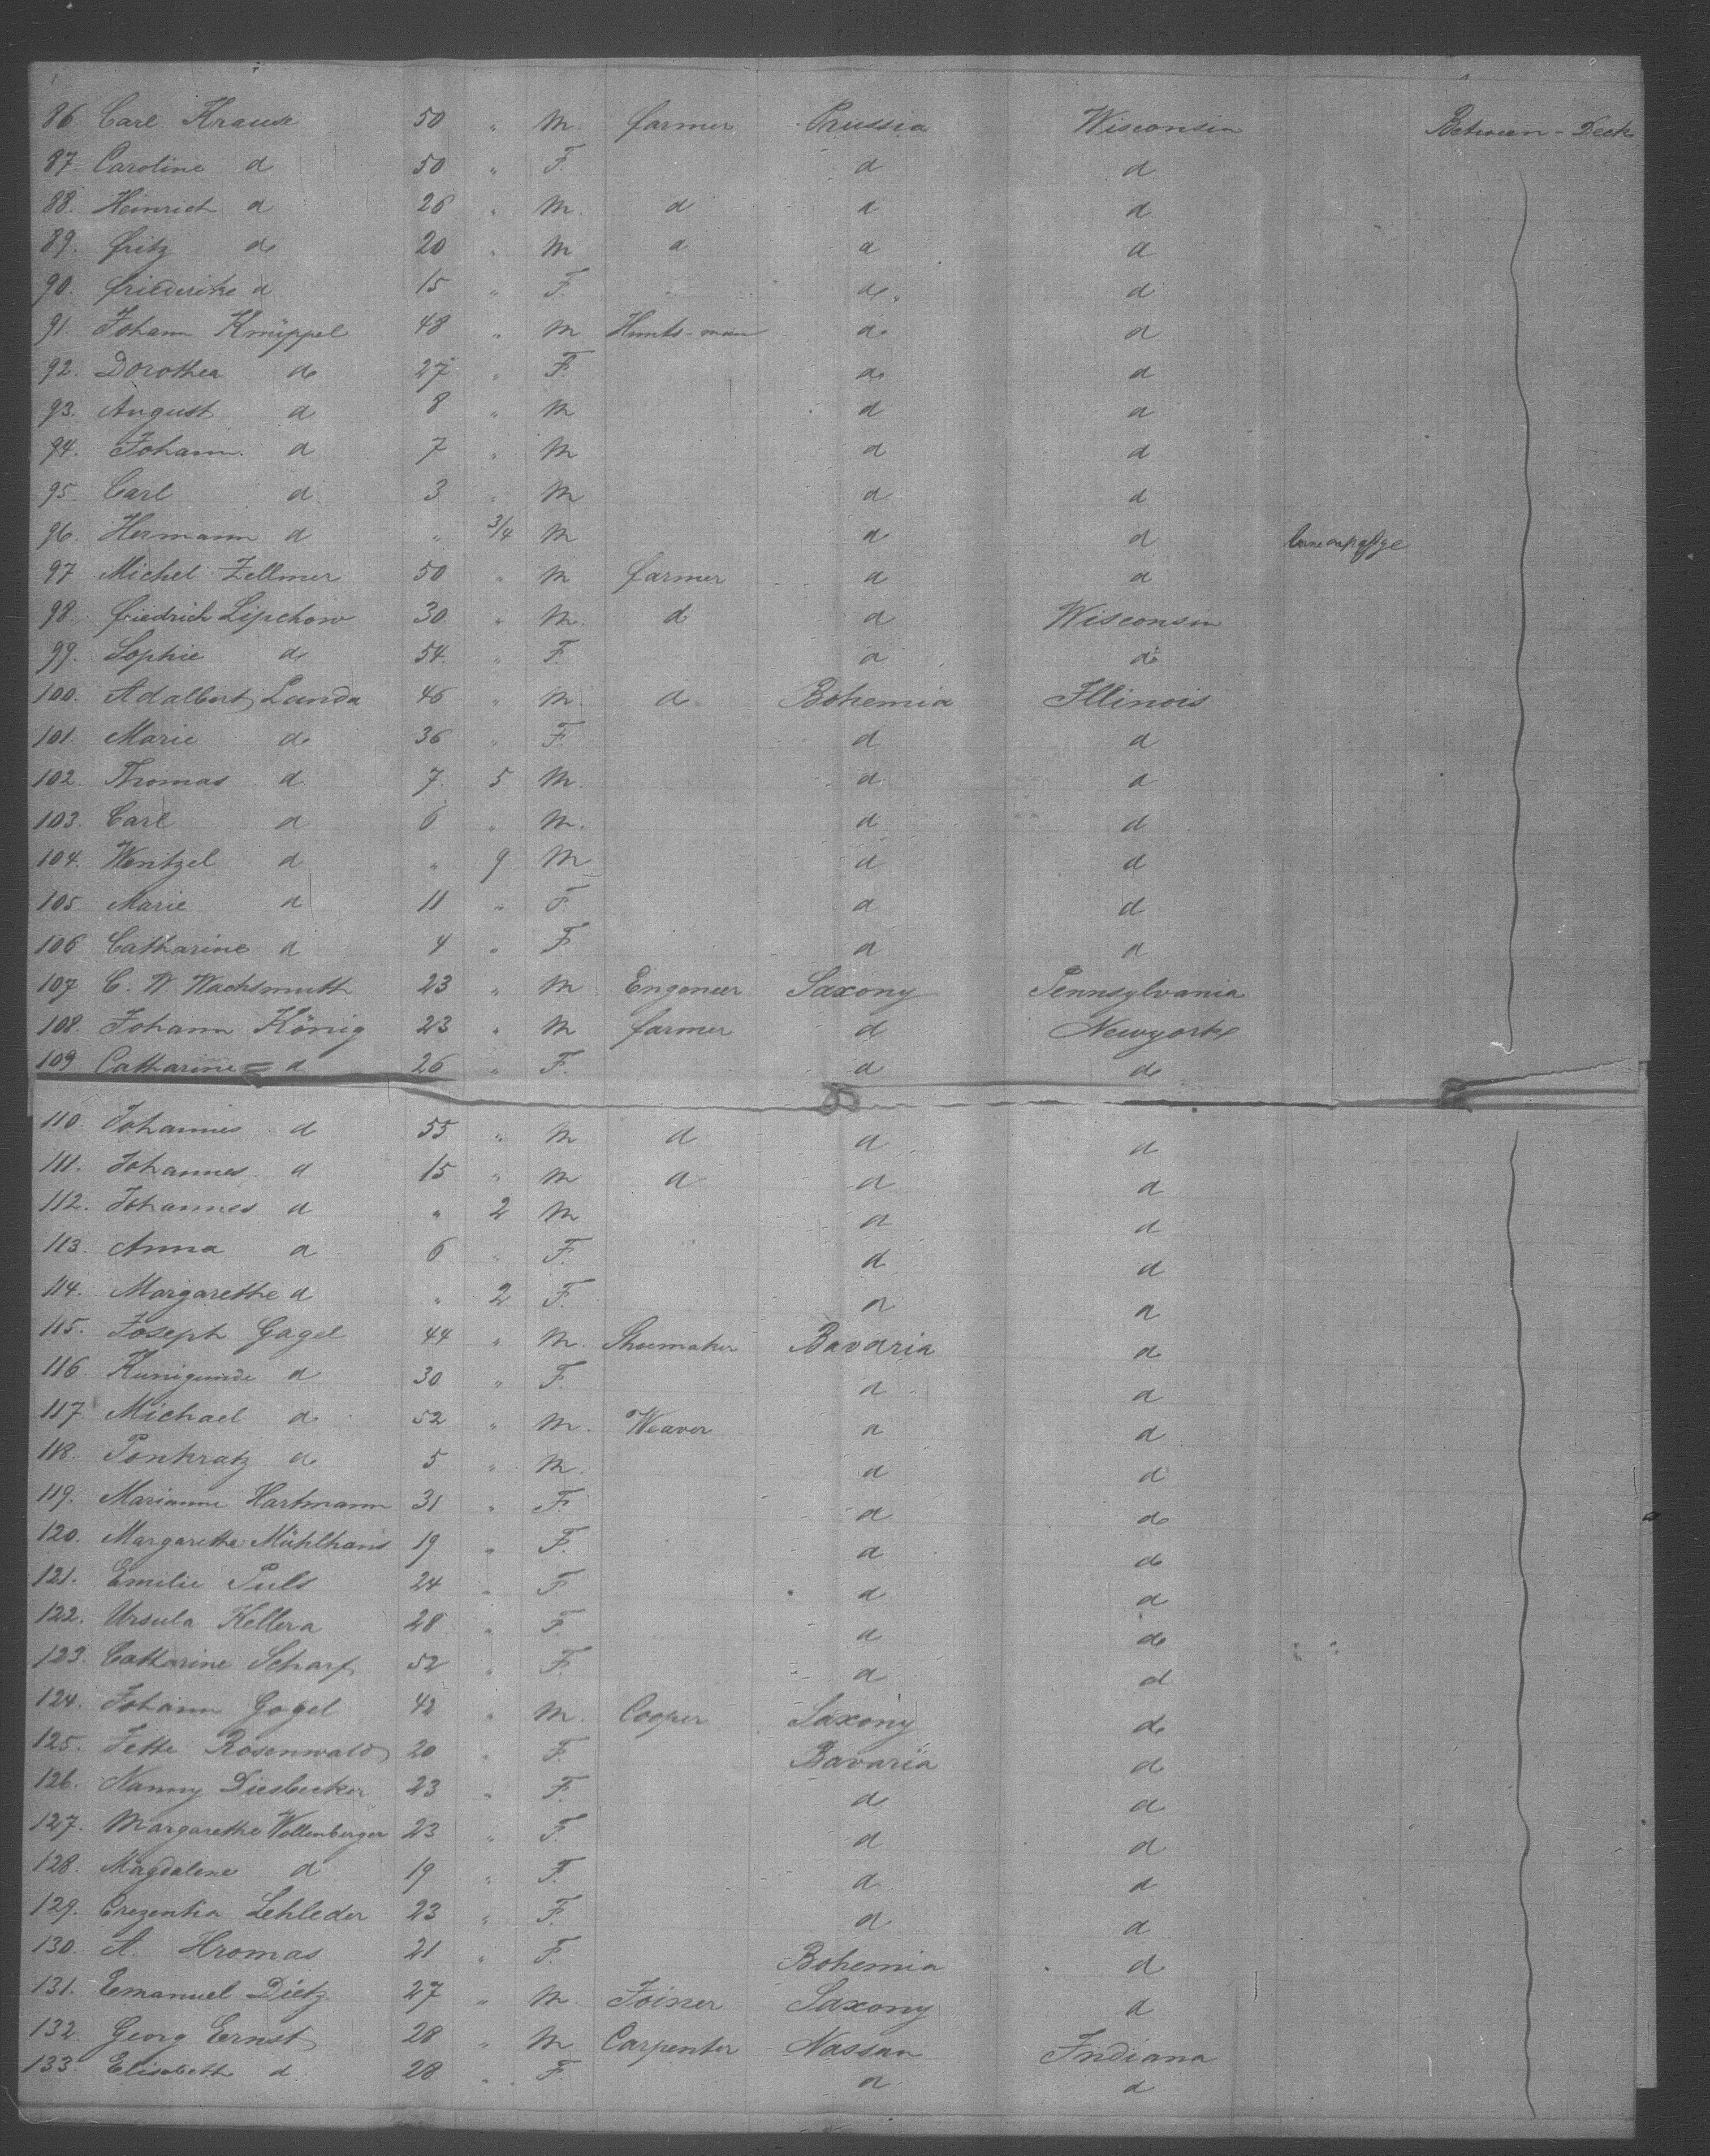 86. Carl Krause 50 " M. farmer Prussia Wisconsin Between-Deck
87. Caroline d 50 " F. d d
88. Heinrich d 26 " M. d d d
89. Fritz do 20 " M d d d
90. Friederike d 15 " F. do d
91. Johann Knüppel 48 " M Hunts-man do d
92. Dorothea do 27 " F. do d
93. August d 8 " M d d
94. Johann d 7 " M d d
95. Carl d 3 " M d d
96. Hermann d " 3/4 M d d
97 Michel Zellmer 50 " M farmer d d
98. Friedrich Lipchow 30 " M. d d Wisconsin
99. Sophie d 54. " F. d do
100. Adalbert Landa 46 " M d Bohemia Illinois
101. Marie do 36 " F. d d
102 Thomas d 7. 5 M. d d
103. Carl d 6 " M. d d
104. Wentzel d " 9 M d d
105 Marie d 11 " F. d d
106 Catharine d 4 " F. d d
107 C. W. Wachsmuth 23 " M Engeneer Saxony Pennsylvania
108. Johann König 23 " M farmer d Newyork
109 Catharine d 26 " F. d do
110. Johannes d 55 " M d d d
111. Johannes d 15 " M d d d
112. Johannes d " 2 M d d
113. Anna d 6 " F. d d
114. Margarethe d " 2 F. d d
115. Joseph Gagel 44 " M. Shoemaker Bavaria do
116. Kunigunde d 30 " F. d d
117. Michael d 52 " M. Weaver d d
118. Ponkratz do 5 " M. d d
119. Marianne Hartmann 31 " F. d do
120. Margaretha Mühlhans 19 " F. d do
121. Emilie Puls 24 " F. d d
122. Ursula Kellera 28 " F. d do
123. Catharine Scharf 52 " F. d d
124. Johann Gogel 42 " M. Cooper Saxony do
125. Jette Rosenwald 20 " F. Bavaria d
126. Nanny Diesbecker 23 " F. d d
127. Margarethe Wollenberger 23 " F. d d
128. Magdalene d 19 " F. d d
129. Crezentia Lehleder 23 " F. d d
130. A. Hromas 21 " F. Bohemia d
131. Emanuel Dietz 27 " M. Joiner Saxony d
132. Georg Ernst 28 " M Carpenter Nassau Indiana
133. Elisabeth d 28 " F. d d